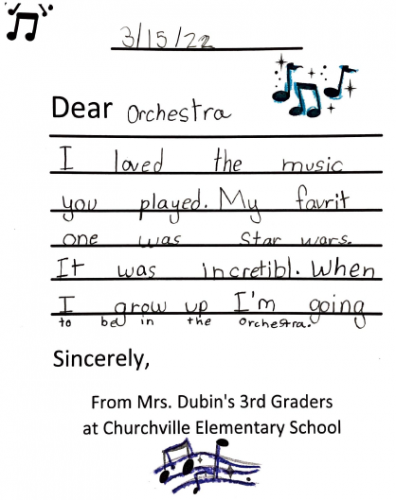 3/15/22
Dear Orchestra
I loved the music
you played. My favrit
one was Star wars.
It was incretibl. When
I grow up I'm going
to be in the orchestra.
Sincerely,
From Mrs. Dubin's 3rd Graders
at Churchville Elementary School